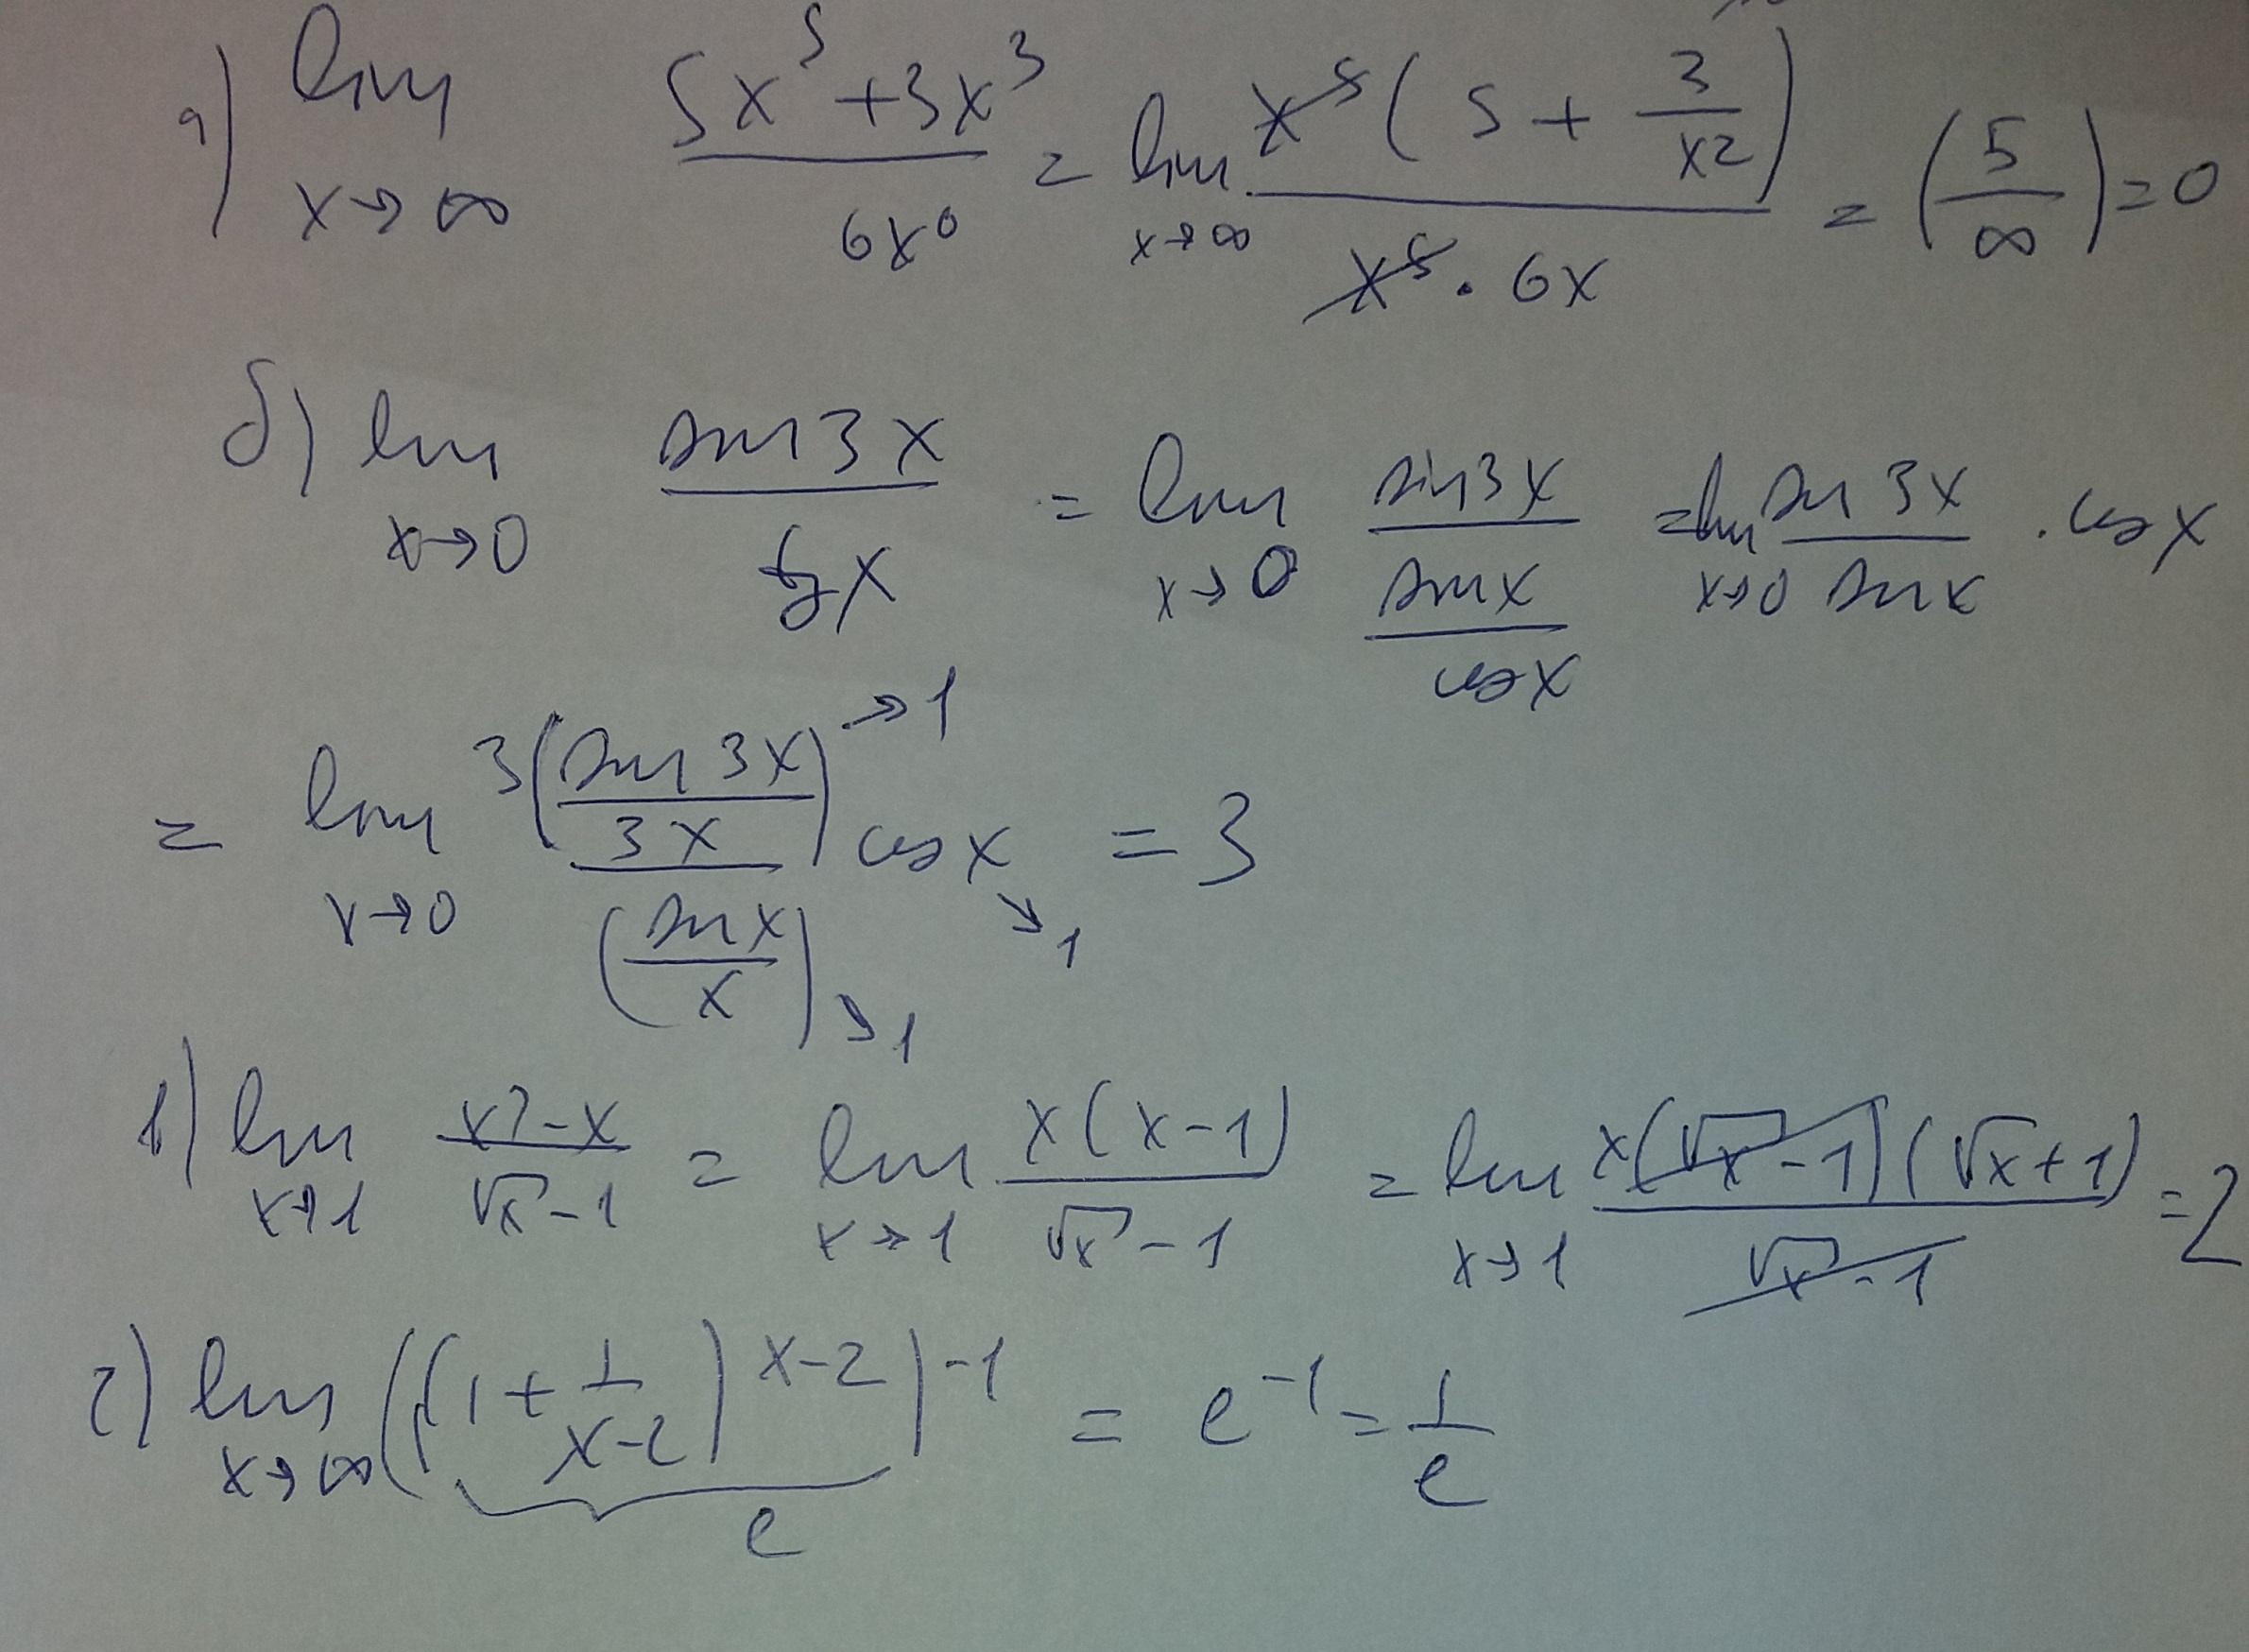 а) lim x→∞ (5x^5+3x^3)/(6x^0) = lim x→∞ (x^5(5+3/x^2))/(x^5·6x) = (5/∞)=0
б) lim x→0 (sin3x)/(tgx) = lim x→0 (sin3x)/((sinx)/(cosx)) = lim x→0 (sin3x)/(sinx) · cosx
= lim x→0 (3((sin3x)/(3x))→1)/(((sinx)/x)→1) cosx→1 = 3
в) lim x→1 (x²-x)/(√x-1) = lim x→1 (x(x-1))/(√x-1) = lim x→1 (x(√x-1)(√x+1))/(√x-1) =2
г) lim x→∞ ((1+1/(x-2))^(x-2))^-1 = e^-1 = 1/e
e